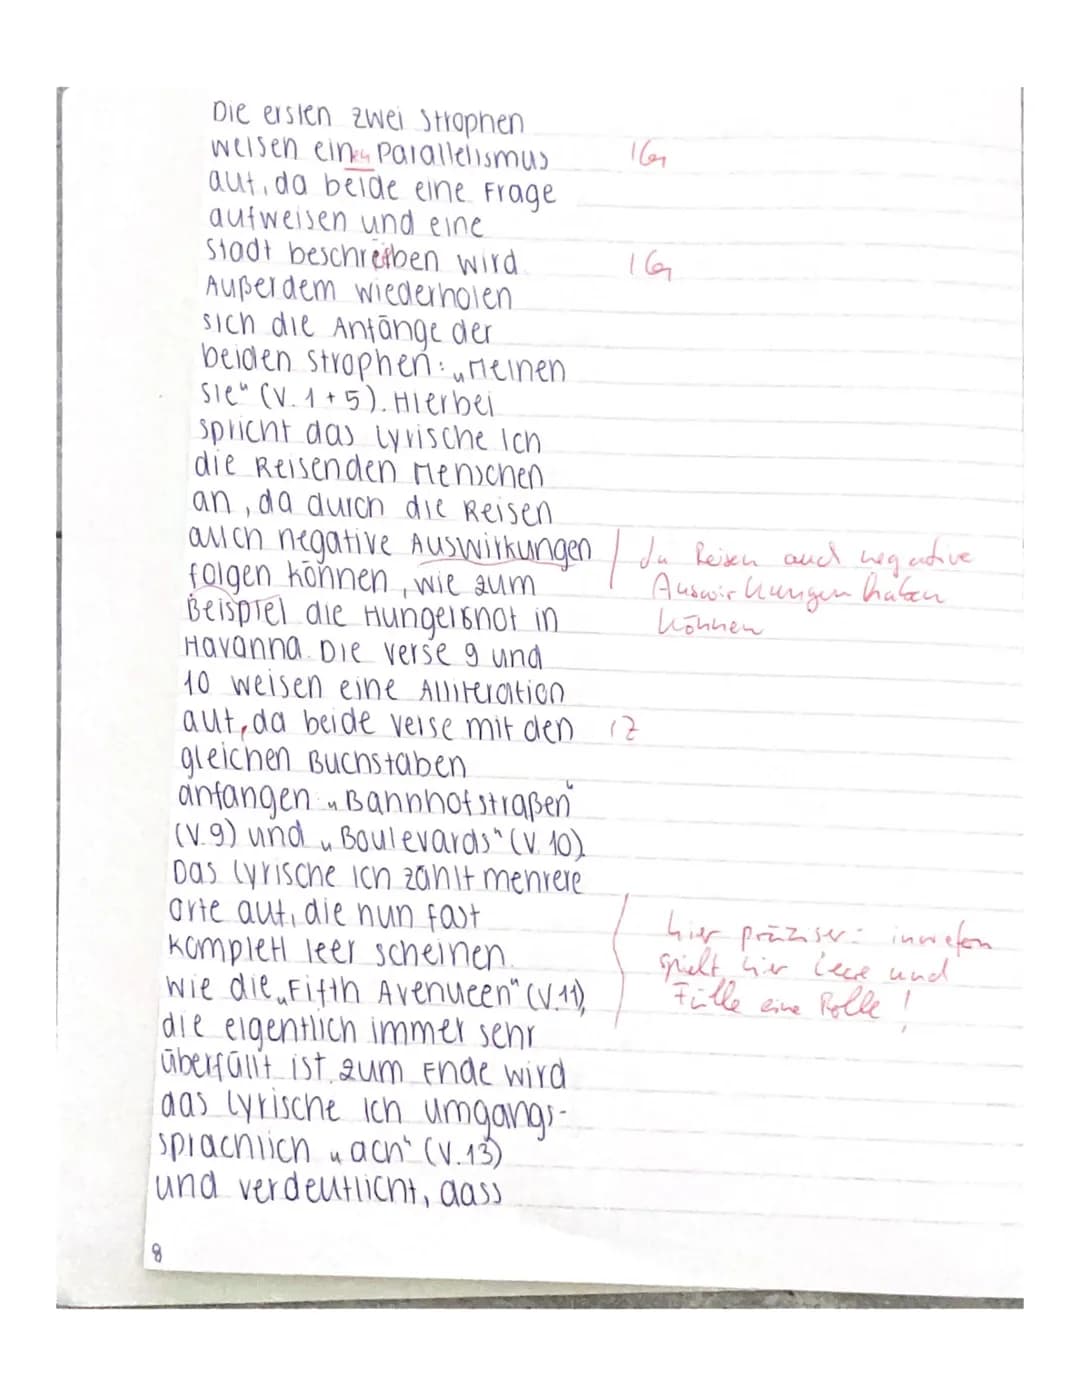 Die ersten zwei Strophen
weisen einen Parallelismus 1 Gr
auf, da beide eine Frage
aufweisen und eine
Stadt beschreiben wird. 1 Gr
Außerdem wiederholen
sich die Anfänge der
beiden Strophen: „Meinen
Sie" (V. 1 + 5). Hierbei
spricht das lyrische Ich
die Reisenden Menschen
an, da durch die Reisen
auch negative Auswirkungen / da Reisen auch negative
folgen können, wie zum Auswirkungen haben
Beispiel die Hungersnot in können
Havanna. Die Verse 9 und
10 weisen eine Alliteration
auf, da beide Verse mit den 1 Z
gleichen Buchstaben
anfangen „Bahnhofstraßen"
(V.9) und „Boulevards" (V. 10).
Das lyrische Ich zählt mehrere
Orte auf, die nun fast hier präziser: inwiefern
komplett leer scheinen. spielt hier Leere und
Wie die „Fifth Avenueen" (V.11), Fülle eine Rolle!
die eigentlich immer sehr
überfüllt ist. Zum Ende wird
das lyrische Ich umgangs-
sprachlich „ach" (V.13)
und verdeutlicht, dass
8